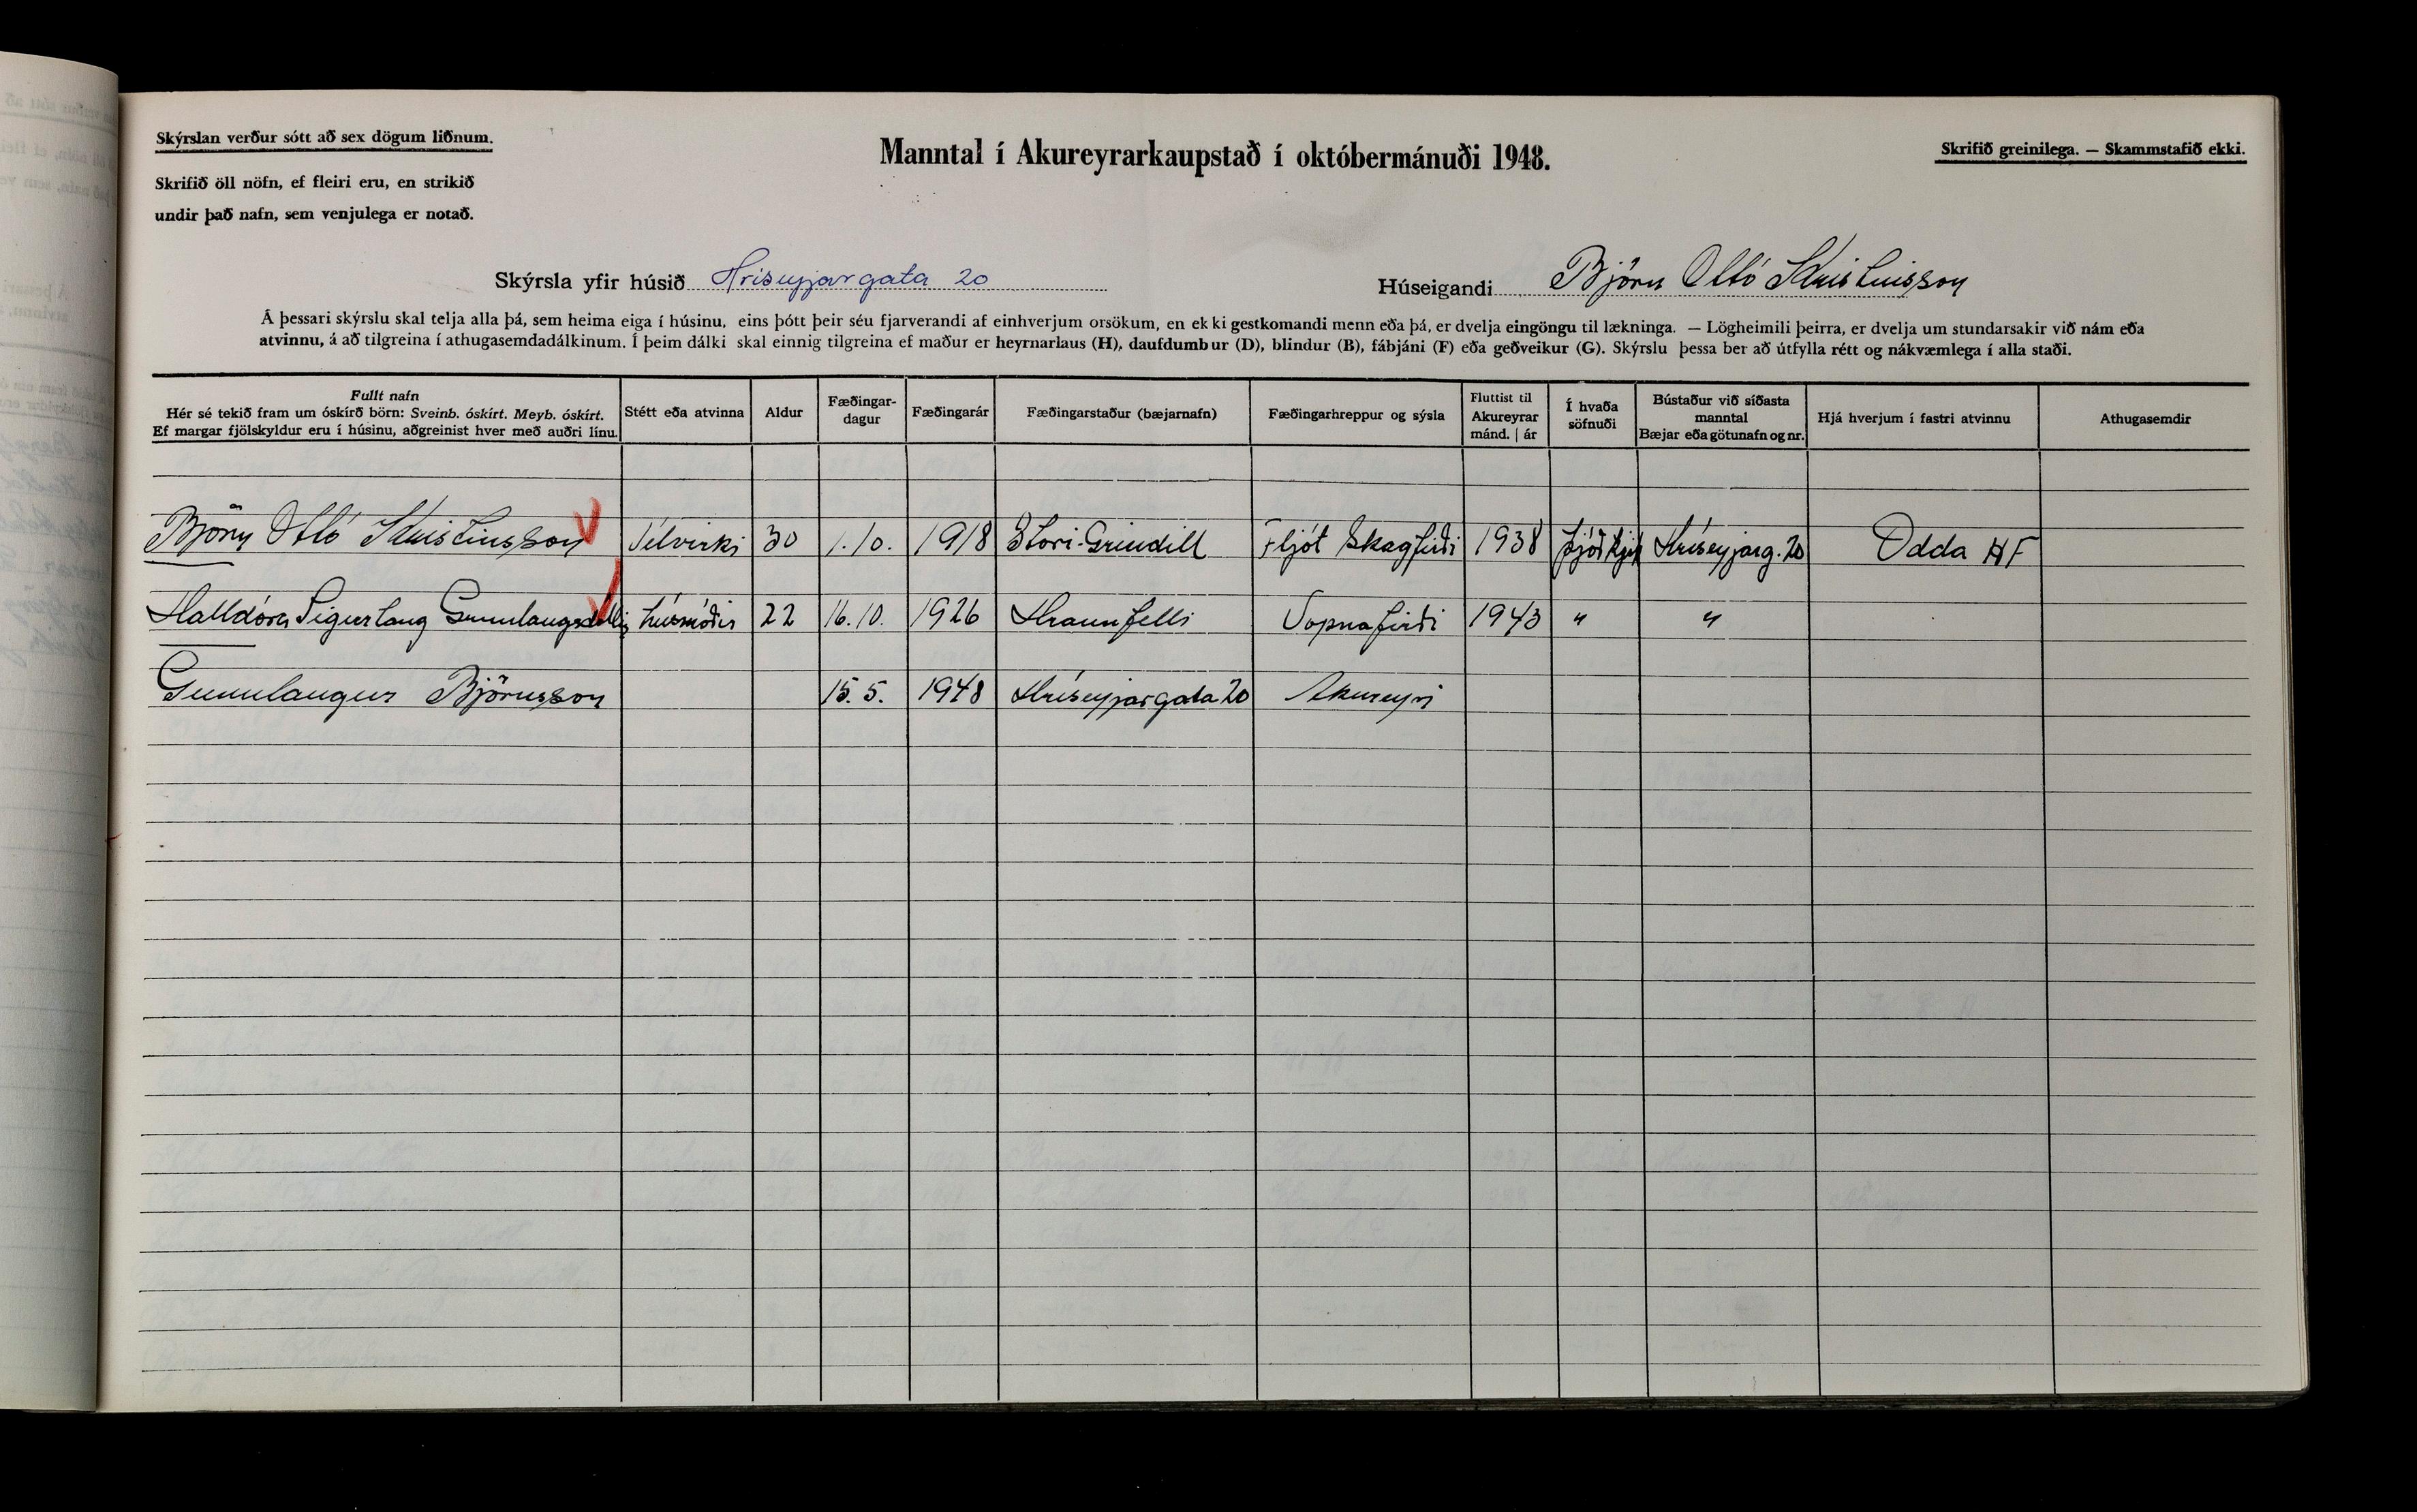 Skýrslan verður sótt að sex dögum liðnum.
Manntal í Akureyrarkaupstað í októbermánuði 1948.
Skrifið greinilega. — Skammstafið ekki.
Skrifið öll nöfn, ef fleiri eru, en strikið
undir það nafn, sem venjulega er notað.
Skýrsla yfir húsið Hríseyjargata 20
Húseigandi Björn Ottó Kristinsson
Á þessari skýrslu skal telja alla þá, sem heima eiga í húsinu, eins þótt þeir séu fjarverandi af einhverjum orsökum, en ekki gestkomandi menn eða þá, er dvelja eingöngu til lækninga. — Lögheimili þeirra, er dvelja um stundarsakir við nám eða
atvinnu, á að tilgreina í athugasemdadálkinum. Í þeim dálki skal einnig tilgreina ef maður er heyrnarlaus (H), daufdumbur (D), blindur (B), fábjáni (F) eða geðveikur (G). Skýrslu þessa ber að útfylla rétt og nákvæmlega í alla staði.
Fullt nafn
Hér sé tekið fram um óskírð börn: Sveinb. óskírt. Meyb. óskírt.
Ef margar fjölskyldur eru í húsinu, aðgreinist hver með auðri línu.
Stétt eða atvinna
Aldur
Fæðingar-
dagur
Fæðingarár
Fæðingarstaður (bæjarnafn)
Fæðingarhreppur og sýsla
Fluttist til
Akureyrar
mánd. | ár
Í hvaða
söfnuði
Bústaður við síðasta
manntal
Bæjar eða götunafn og nr.
Hjá hverjum í fastri atvinnu
Athugasemdir
Björn Ottó Kristinsson Vélvirki 30 1.10. 1918 Stóri-Grindill Fljót Skagfirði 1938 þjóðkirk Hríseyjarg. 20 Odda HF
Halldóra Sigurlaug Gunnlaugsdóttir húsmóðir 22 16.10. 1926 Hraunfelli Vopnafirði 1943 " "
Gunnlaugur Björnsson 15.5. 1948 Hríseyjargata 20 Akureyri